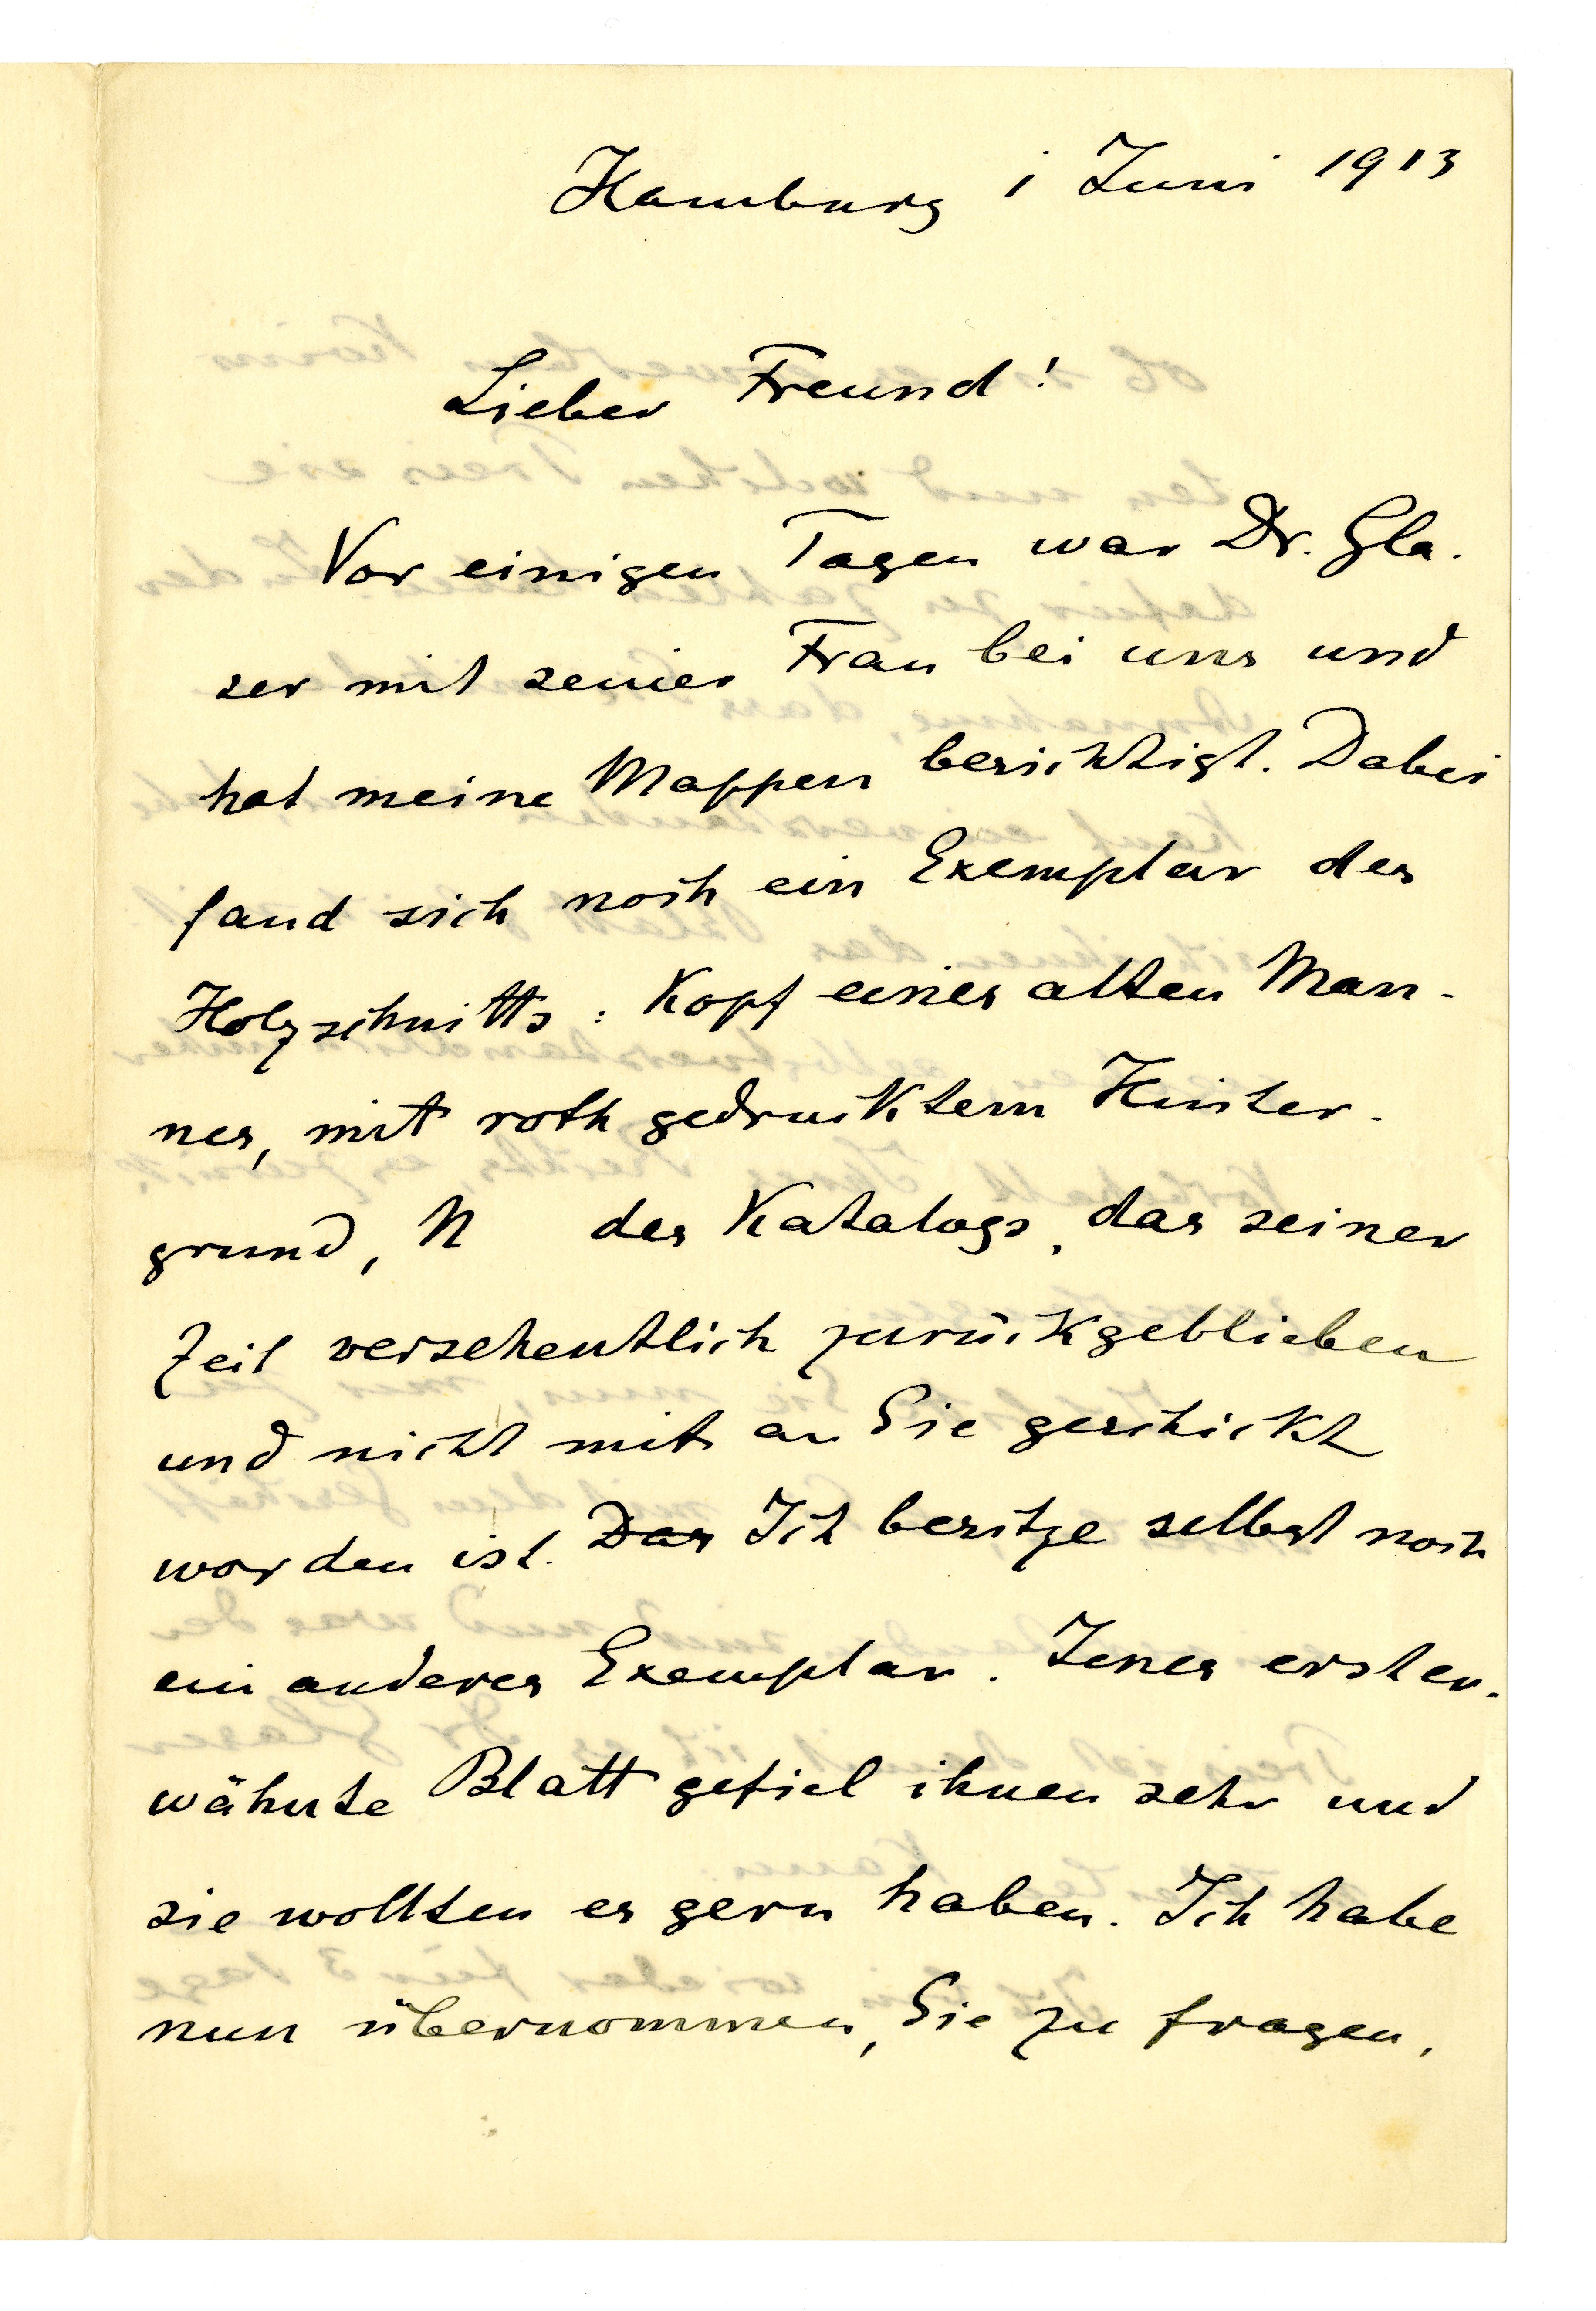 Hamburg 1 Juni 1913
Lieber Freund!
Vor einigen Tagen war Dr. Gla-
ser mit seiner Frau bei uns und
hat meine Mappen besichtigt. Dabei
fand sich noch ein Exemplar des
Holzschnitts: Kopf eines alten Man-
nes, mit roth gedrucktem Hinter-
grund, N des Katalogs, das seiner
Zeit versehentlich zurückgeblieben
und nicht mit an Sie geschickt
worden ist. Das Ich besitze selbst noch
ein anderes Exemplar. Jenes erster-
wähnte Blatt gefiel ihnen sehr und
sie wollten es gern haben. Ich habe
nun übernommen, Sie zu fragen,